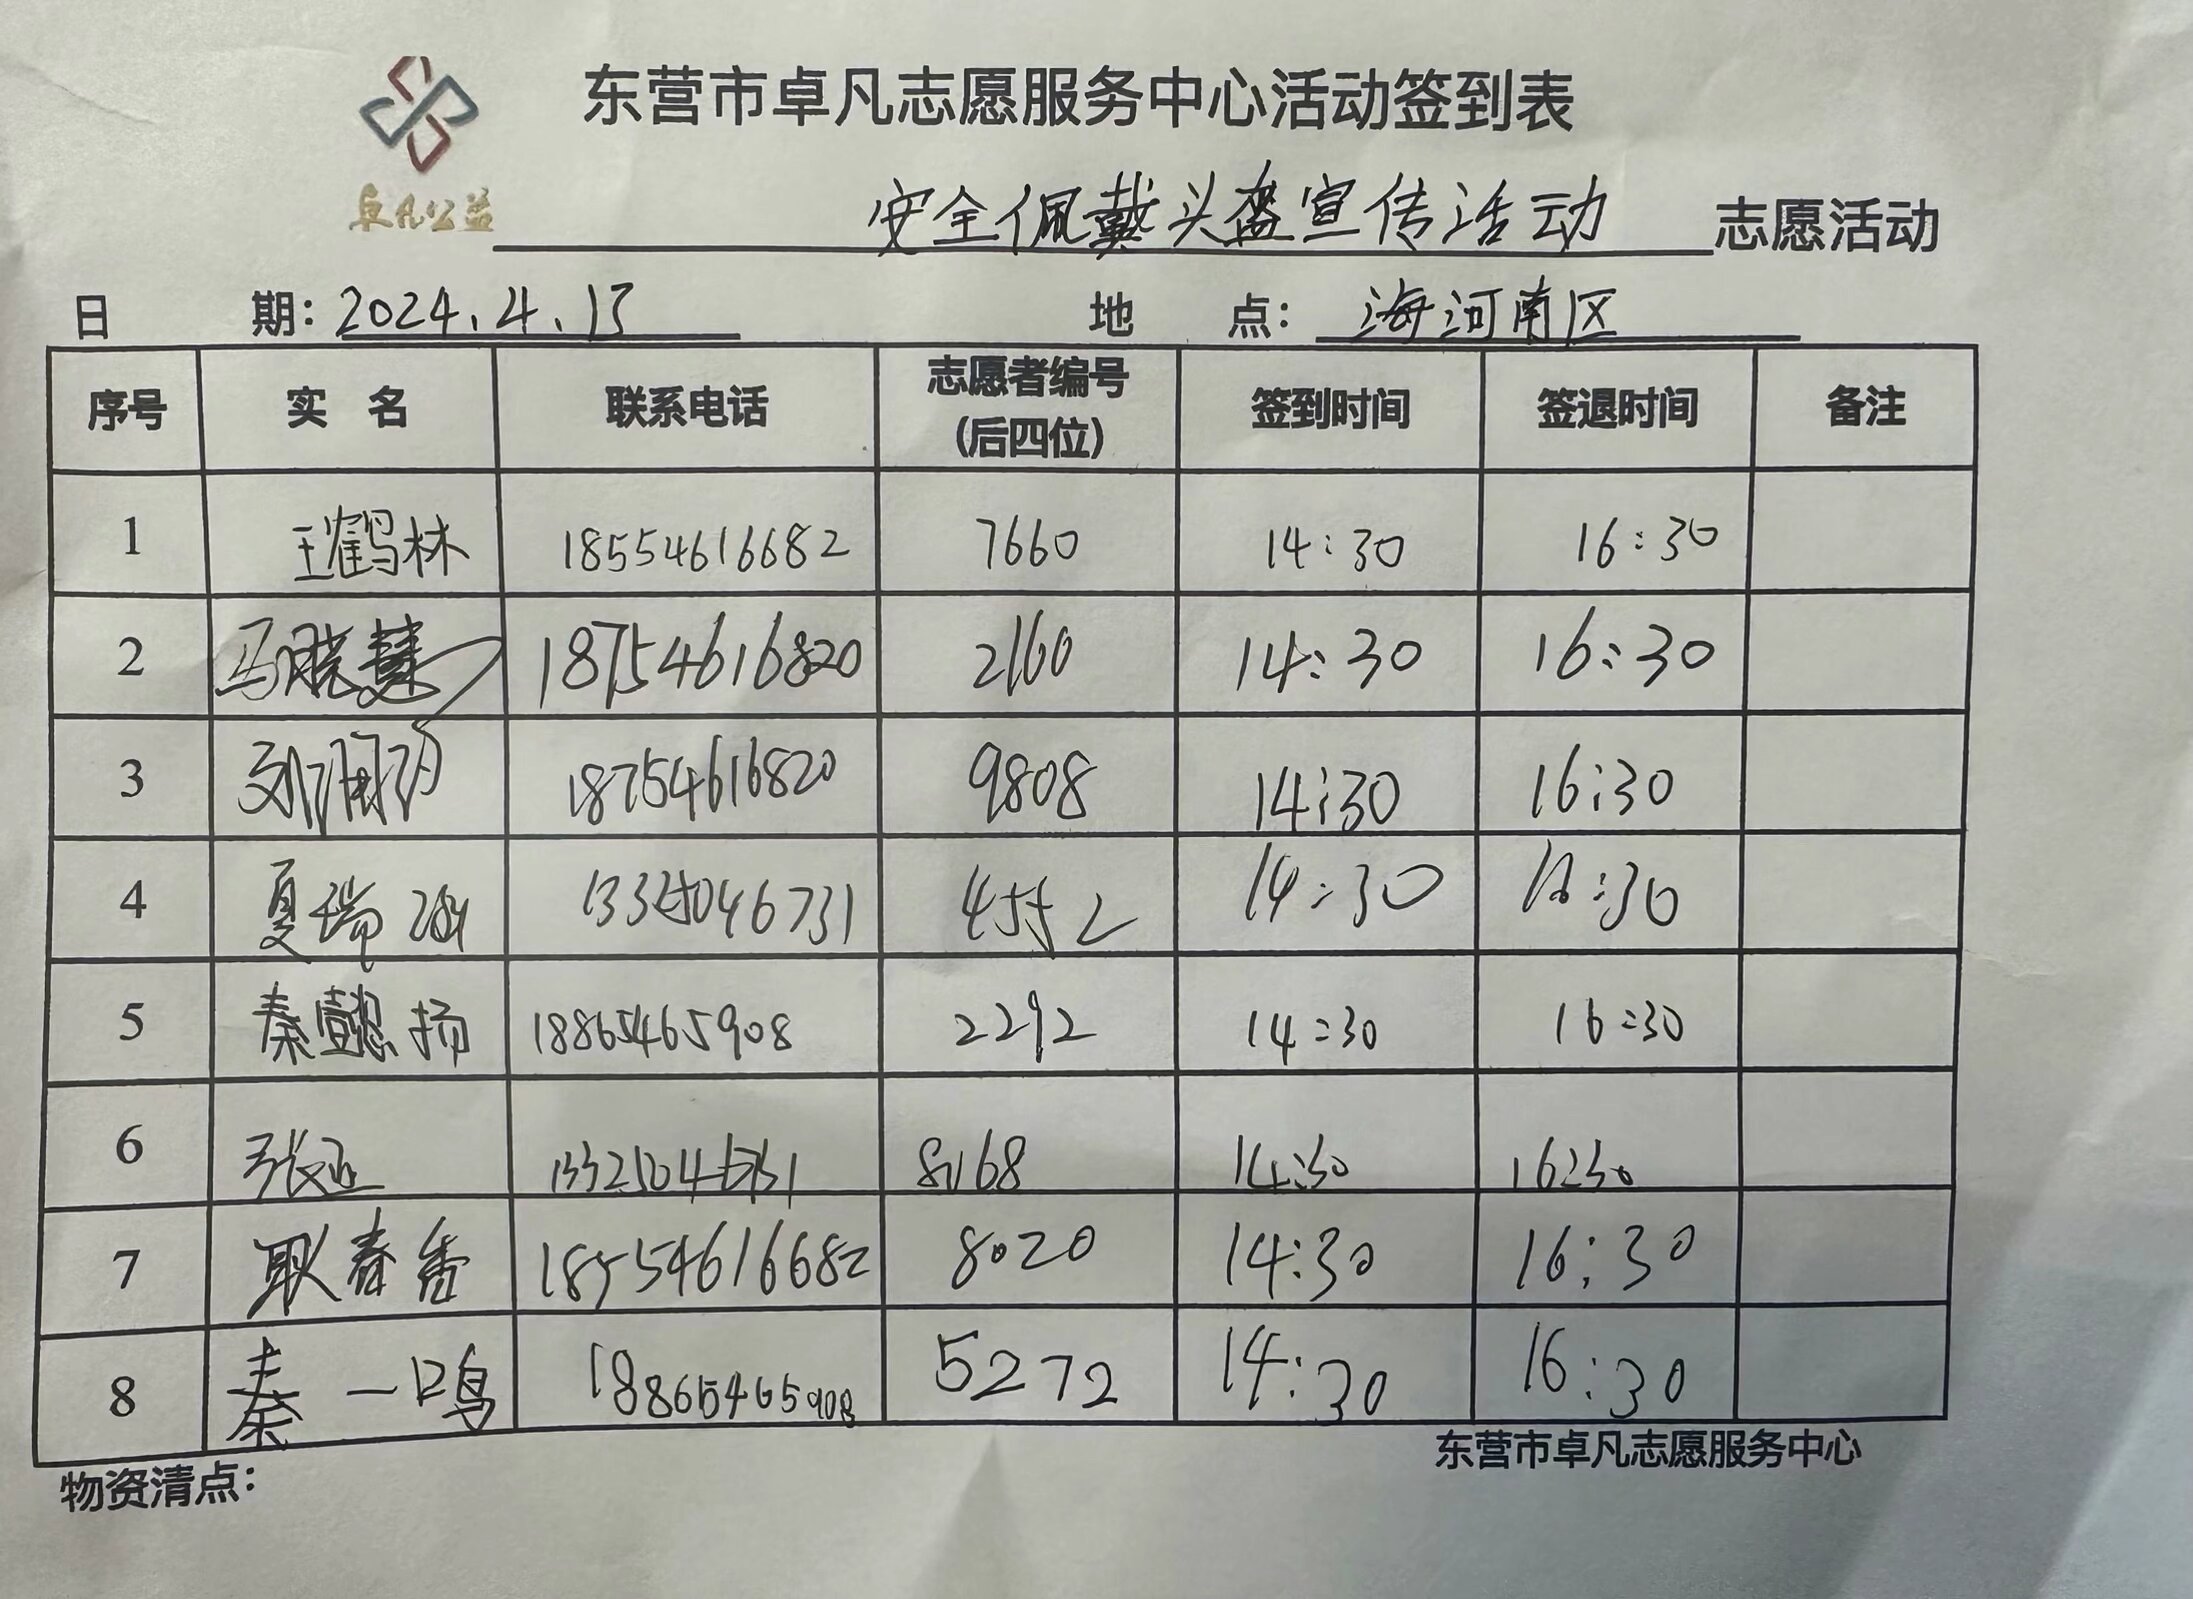 东营市卓凡志愿服务中心活动签到表
卓凡公益
安全佩戴头盔宣传活动 志愿活动
日 期: 2024.4.13 地 点: 海河南区
序号 实 名 联系电话 志愿者编号(后四位) 签到时间 签退时间 备注
1 王鹤林 18554616682 7660 14:30 16:30
2 马晓慧 18754616820 2160 14:30 16:30
3 18754616820 9808 14:30 16:30
4 夏瑞 13325046731 4552 14:30 16:30
5 秦懿扬 18865465908 2292 14:30 16:30
6 张 8168 14:30 16:30
7 耿春香 18554616682 8020 14:30 16:30
8 秦一鸣 18865465908 5272 14:30 16:30
东营市卓凡志愿服务中心
物资清点: